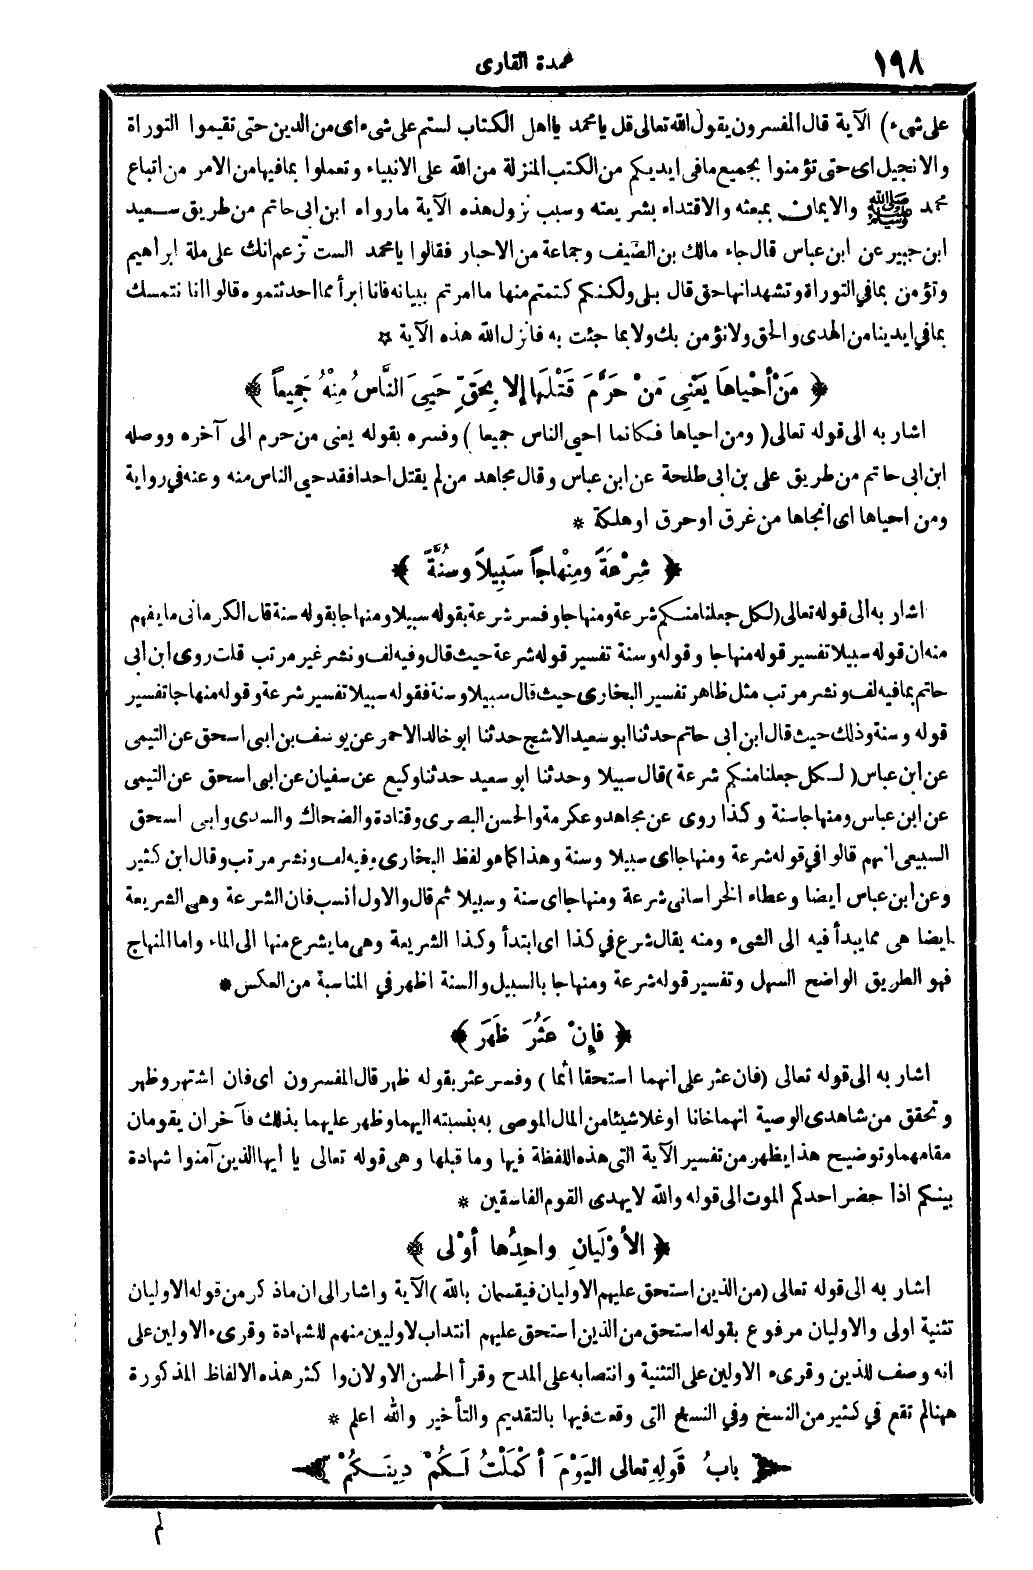 ١٩٨
عمدة القارى
على شىء ) الآية قال المفسرون يقول الله تعالى قل يا محمد يا اهل الكتاب لستم على شىء اى من الدين حتى تقيموا التوراة
والانجيل اى حتى تؤمنوا بجميع ما فى ايديكم من الكتب المنزلة من الله على الانبياء وتعملوا بما فيها من الامر من اتباع
محمد ﷺ والايمان بمبعثه والاقتداء بشريعته وسبب نزول هذه الآية ما رواه ابن ابى حاتم من طريق سعيد
ابن جبير عن ابن عباس قال جاء مالك بن الضيف وجماعة من الاحبار فقالوا يا محمد الست تزعم انك على ملة ابراهيم
وتؤمن بما في التوراة وتشهد انها حق قال بلى ولكنكم كتمتم منها ما امرتم ببيانه فانا ابرأ مما احدثتموه قالوا انا نتمسك
بما في ايدينا من الهدى والحق ولا نؤمن بك ولا بما جئت به فانزل الله هذه الآية *
﴿ مَنْ أَحْياهَا يَعْنِى مَنْ حَرَّمَ قَتْلَها إلا بِحَقٍّ حَيِىَ النَّاسُ مِنْهُ جَمِيعاً ﴾
اشار به الى قوله تعالى ( ومن احياها فكانما احيى الناس جميعا ) وفسره بقوله يعنى من حرم الى آخره ووصله
ابن ابى حاتم من طريق على بن ابى طلحة عن ابن عباس وقال مجاهد من لم يقتل احدا فقد حيى الناس منه وعنه في رواية
ومن احياها اى انجاها من غرق او حرق او هلكة *
﴿ شِرْعَةً ومِنْهاجاً سَبِيلاً وسُنَّةً ﴾
اشار به الى قوله تعالى (لكل جعلنا منكم شرعة ومنهاجا وفسر شرعة بقوله سبيلا ومنهاجا بقوله سنة قال الكرمانى ما يفهم
منه ان قوله سبيلا تفسير قوله منهاجا وقوله وسنة تفسير قوله شرعة حيث قال وفيه لف ونشر غير مرتب قلت روى ابن أبى
حاتم بما فيه لف ونشر مرتب مثل ظاهر تفسير البخارى حيث قال سبيلا وسنة فقوله سبيلا تفسير شرعة وقوله منهاجا تفسير
قوله وسنة وذلك حيث قال ابن أبى حاتم حدثنا ابو سعيد الاشج حدثنا ابو خالد الاحمر عن يوسف بن ابى اسحق عن التيمى
عن ابن عباس ( لكل جعلنا منكم شرعة ) قال سبيلا وحدثنا ابو سعيد حدثنا وكيع عن سفيان عن ابى اسحق عن التيمى
عن ابن عباس ومنهاجا سنة وكذا روى عن مجاهد وعكرمة والحسن البصرى وقتادة والضحاك والسدى وابى اسحق
السبيعى انهم قالوا في قوله شرعة ومنهاجا اى سبيلا وسنة وهذا كما هو لفظ البخارى وفيه لف ونشر مرتب وقال ابن كثير
وعن ابن عباس ايضا وعطاء الخراسانى شرعة ومنهاجا اى سنة وسبيلا ثم قال والاول انسب فان الشرعة وهى الشريعة
ايضا هى مما يبدأ فيه الى الشىء ومنه يقال شرع في كذا اى ابتدأ وكذا الشريعة وهى ما يشرع منها الى الماء واما المنهاج
فهو الطريق الواضح السهل وتفسير قوله شرعة ومنهاجا بالسبيل والسنة اظهر في المناسبة من العكس *
﴿ فإِنْ عَثُرَ ظَهَرَ ﴾
اشار به الى قوله تعالى (فان عثر على انهما استحقا اثما ) وفسر عثر بقوله ظهر قال المفسرون اى فان اشتهر وظهر
وتحقق من شاهدى الوصية انهما خانا او غلا شيئا من المال الموصى به بنسبته اليهما وظهر عليهما بذلك فآخران يقومان
مقامهما وتوضيح هذا يظهر من تفسير الآية التى هذه اللفظة فيها وما قبلها وهى قوله تعالى يا أيها الذين آمنوا شهادة
بينكم اذا حضر احدكم الموت الى قوله والله لا يهدى القوم الفاسقين *
﴿ الأوْلَيانِ واحِدُها أوْلى ﴾
اشار به الى قوله تعالى (من الذين استحق عليهم الاوليان فيقسمان بالله ) الآية واشار الى ان ما ذكر من قوله الاوليان
تثنية اولى والاوليان مرفوع بقوله استحق من الذين استحق عليهم انتداب الاوليين منهم للشهادة وقرىء الاولين على
انه وصف للذين وقرىء الاولين على التثنية وانتصابه على المدح وقرأ الحسن الاولان واكثر هذه الالفاظ المذكورة
ههنا لم تقع في كثير من النسخ وفي النسخ التى وقعت فيها بالتقديم والتأخير والله اعلم *
﴿ بابُ قَولِهِ تعالى اليَوْمَ أكْمَلْتُ لَكُمْ دِينَكُمْ ﴾
لم